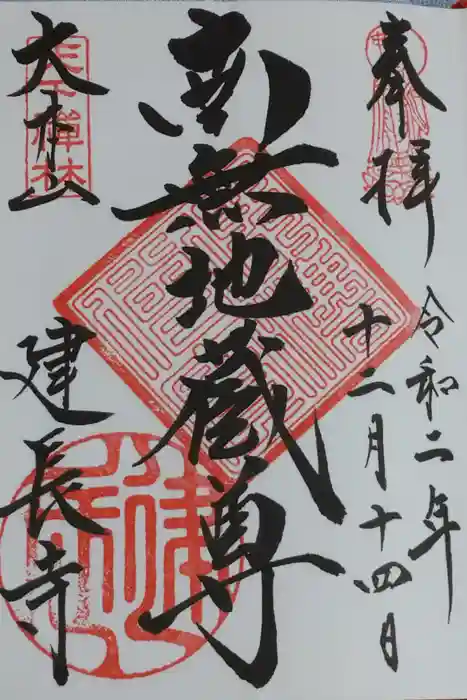 奉拝
令和二年
十二月十四日
南無地蔵尊
天下禅林
大本山
建長寺